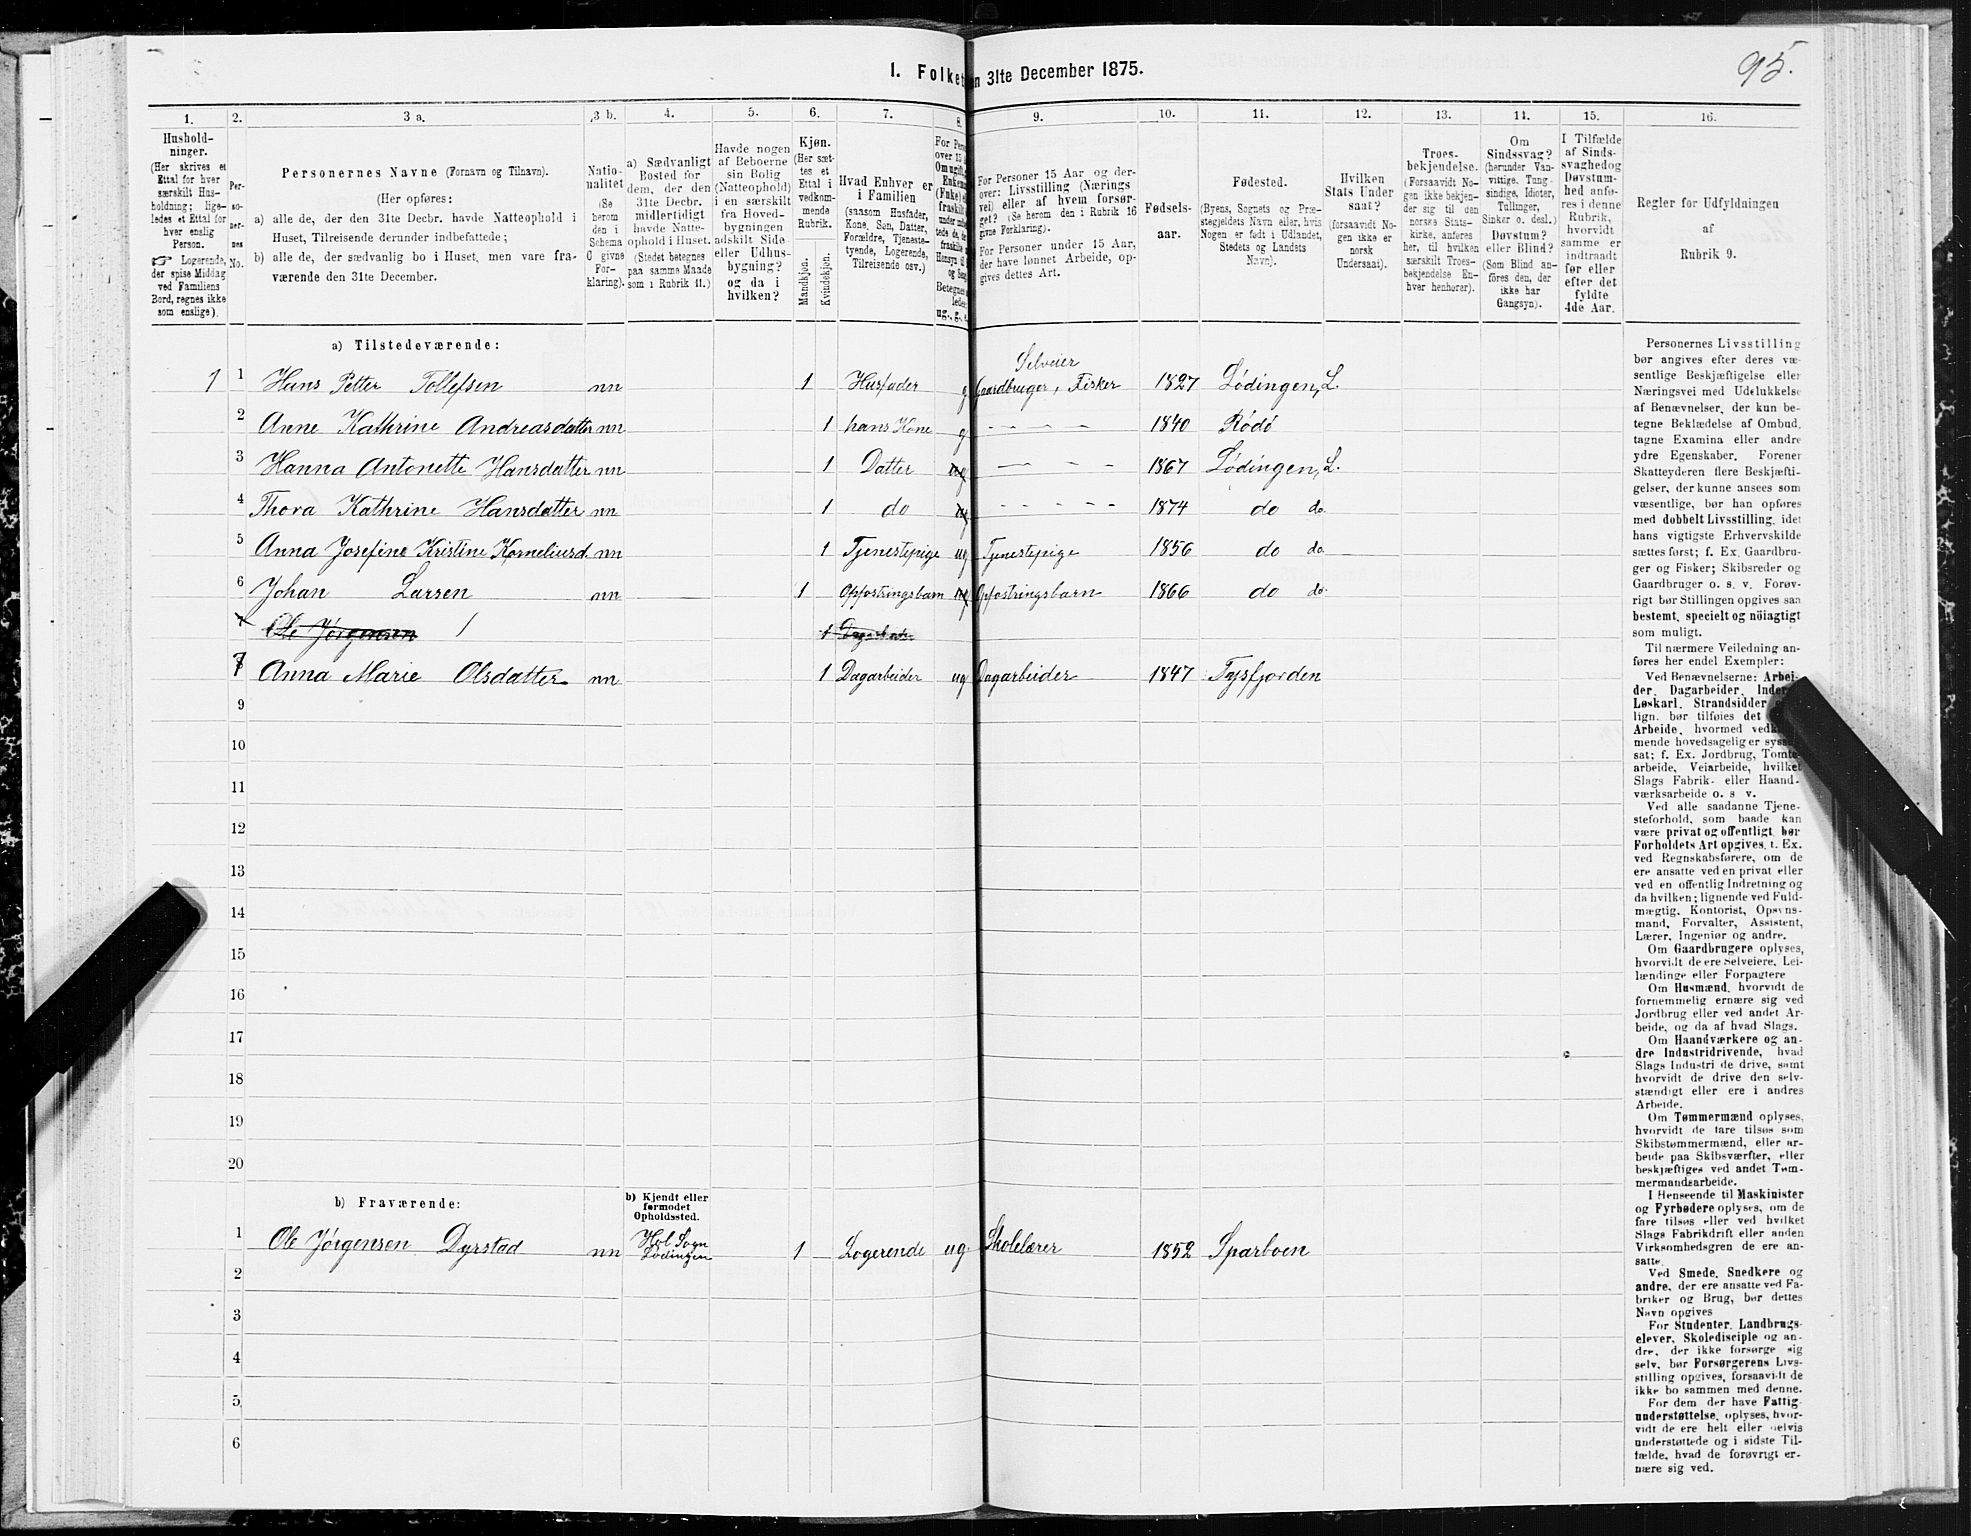 95.
I. Folket
n 31te December 1875.
1. 2. 3 a. 3 b. 4. 5. 6. 7. 8. 9. 10. 11. 12. 13. 14. 15. 16.
Hushold-
ninger.
(Her skrives et
Ettal for hver
særskilt Hus-
holdning; lige-
ledes et Ettal for
hver enslig
Person.
☞ Logerende,
der spise Middag
ved Familiens
Bord, regnes ikke
som enslige).
Per-
so-
ner-
nes
No.
Personernes Navne (Fornavn og Tilnavn).
(Her opføres:
a) alle de, der den 31te Decbr. havde Natteophold i
Huset, Tilreisende derunder indbefattede;
b) alle de, der sædvanlig bo i Huset, men vare fra-
værende den 31te December.
Natio-
nalitet
(Se
herom
den i
Schema
O givne
For-
klaring).
a) Sædvanligt
Bosted for
dem, der den
31te Decbr.
midlertidigt
havde Natte-
ophold i Huset.
(Stedet betegnes
paa samme Maade
som i Rubrik 11.)
Havde nogen
af Beboerne
sin Bolig
(Natteophold)
i en særskilt
fra Hoved-
bygningen
adskilt Side-
eller Udhus-
bygning?
og da i
hvilken?
Kjøn.
(Her sæt-
tes et
Ettal i
vedkom-
mende
Rubrik.
Mandkjøn.
Kvindekjøn.
Hvad Enhver er
i Familien
(saasom Husfader,
Kone, Søn, Datter,
Forældre, Tjeneste-
tyende, Logerende,
Tilreisende osv.)
For Pers
over 15 a
Om ugift,
Enkema
(Enke) e
fraskilt
ug., g., e.
For Personer 15 Aar og der-
over: Livsstilling (Nærings
vei) eller af hvem forsør-
get? (Se herom den i Rubrik 16
givne Forklaring).
For Personer under 15 Aar,
der have lønnet Arbeide, op-
gives dettes Art.
Fødsels-
aar.
Fødested.
(Byens, Sognets og Præ-
stegjeldets Navn eller, hvis
Nogen er født i Udlandet,
Stedets og Landets
Navn).
Hvilken
Stats Under
saat?
(forsaavidt No-
gen ikke er
norsk
Undersaat).
Troes-
bekjendelse.
(Forsaavidt No-
gen ikke bekjen-
der sig til den
norske Stats-
kirke, anføres
her, til hvilken
særskilt Troes-
bekjendelse En-
hver henhører).
Om
Sindssvag?
(herunder Van-
vittige, Tung-
sindige, Idioter,
Tullinger,
Sinker o. desl.)
Døvstum?
eller Blind?
(Som Blind an-
føres den, der
ikke har
Gangsyn).
I Tilfælde
af Sinds-
svaghed og
Døvstum-
hed anfø-
res i denne
Rubrik,
hvorvidt
samme er
indtraadt
før eller
efter det
fyldte
4de Aar.
Regler for Udfyldningen
af
Rubrik 9.
a) Tilstedeværende:
Selveier
1 1 Hans Petter Tollefsen nn 1 Husfader g Gaardbruger, Fisker 1827 Lødingen, L.
2 Anne Kathrine Andreasdatter nn 1 hans Kone g 1840 Rødø
3 Hanna Antonette Hansdatter nn 1 Datter ug 1867 Lødingen, L.
4 Thora Kathrine Hansdatter nn 1 do ug 1874 do do
5 Anna Josefine Kristine Korneliusd. nn 1 Tjenestepige ug Tjenestepige 1856 do do
6 Johan Larsen nn 1 Opfostringsbarn ug Opfostringsbarn 1866 do do
7 Ole Jørgensen 1
7 Anna Marie Olsdatter nn 1 Dagarbeider ug Dagarbeider 1847 Tysfjorden
9
10
11
12
13
14
15
16
17
18
19
20
b) Fraværende:
b) Kjendt eller
formodet
Opholdssted.
1 Ole Jørgensen Dyrstad nn Hol Sogn Lødingen 1 Logerende ug Skolelærer 1852 Sparboen
2
3
4
5
6
Personernes Livsstilling
bør angives efter deres væ-
sentlige Beskjæftigelse eller
Næringsvei med Udelukkelse
af Benævnelser, der kun be-
tegne Beklædelse af Ombud,
tagne Examina eller andre
ydre Egenskaber. Forener
Skatteyderen flere Beskjæfti-
gelser, der kunne ansees som
væsentlige, bør han opføres
med dobbelt Livsstilling, idet
hans vigtigste Erhvervskilde
sættes først; f. Ex. Gaardbru-
ger og Fisker; Skibsreder og
Gaardbruger o. s. v. Forøv-
rigt bør Stillingen opgives saa
bestemt, specielt og nöiagtigt
som muligt.
Til nærmere Veiledning an-
føres her endel Exempler:
Ved Benævnelserne: Arbei-
der, Dagarbeider, Inder
Løskarl, Strandsidder
lign. bør tilføies det
Arbeide, hvormed vedk
mende hovedsagelig er syss
sat; f. Ex. Jordbrug, Tomte-
arbeide, Veiarbeide, hvilket
Slags Fabrik- eller Haand-
værksarbeide o. s v.
Ved alle saadanne Tjene-
steforhold, som baade kan
være privat og offentligt, bør
Forholdets Art opgives, t. Ex.
ved Regnskabsførere, om de
ere ansatte ved en privat eller
ved en offentlig Indretning og
da hvilken; lignende ved Fuld-
mægtig, Kontorist, Opsyns-
mand, Forvalter, Assistent,
Lærer, Ingeniør og andre.
Om Gaardbrugere oplyses,
hvorvidt de ere Selveiere, Lei-
lændinge eller Forpagtere
Om Husmænd, hvorvidt de
fornemmelig ernære sig ved
Jordbrug eller ved andet Ar-
beide, og da af hvad Slags.
Om Haandværkere og an-
dre Industridrivende, hvad
Slags Industri de drive, samt
hvorvidt de drive den selv-
stændigt eller ere i andres
Arbeide.
Om Tømmermænd oplyses,
hvorvidt de fare tilsøs som
Skibstømmermænd, eller ar-
beide paa Skibsværfter, eller
beskjæftiges ved andet Tøm-
mermandsarbeide.
I Henseende til Maskinister
og Fyrbødere oplyses, om de
fare tilsøs eller ved hvilket
Slags Fabrikdrift eller anden
Virksomhedsgren de ere an-
satte.
Ved Smede, Snedkere og
andre, der ere ansatte ved Fa-
briker og Brug, bør dettes
Navn opgives
For Studenter, Landbrugs-
elever, Skoledisciple og an-
dre, der ikke forsørge sig
selv, bør Forsørgerens Livs-
stilling opgives, forsaavidt de
ikke bo sammen med denne.
For dem der have Fattig-
understøttelse, oplyses, hvor-
vidt de ere helt eller delvis
understøttede og i sidste Til-
fælde, hvad de forøvrigt er-
nære sig ved.